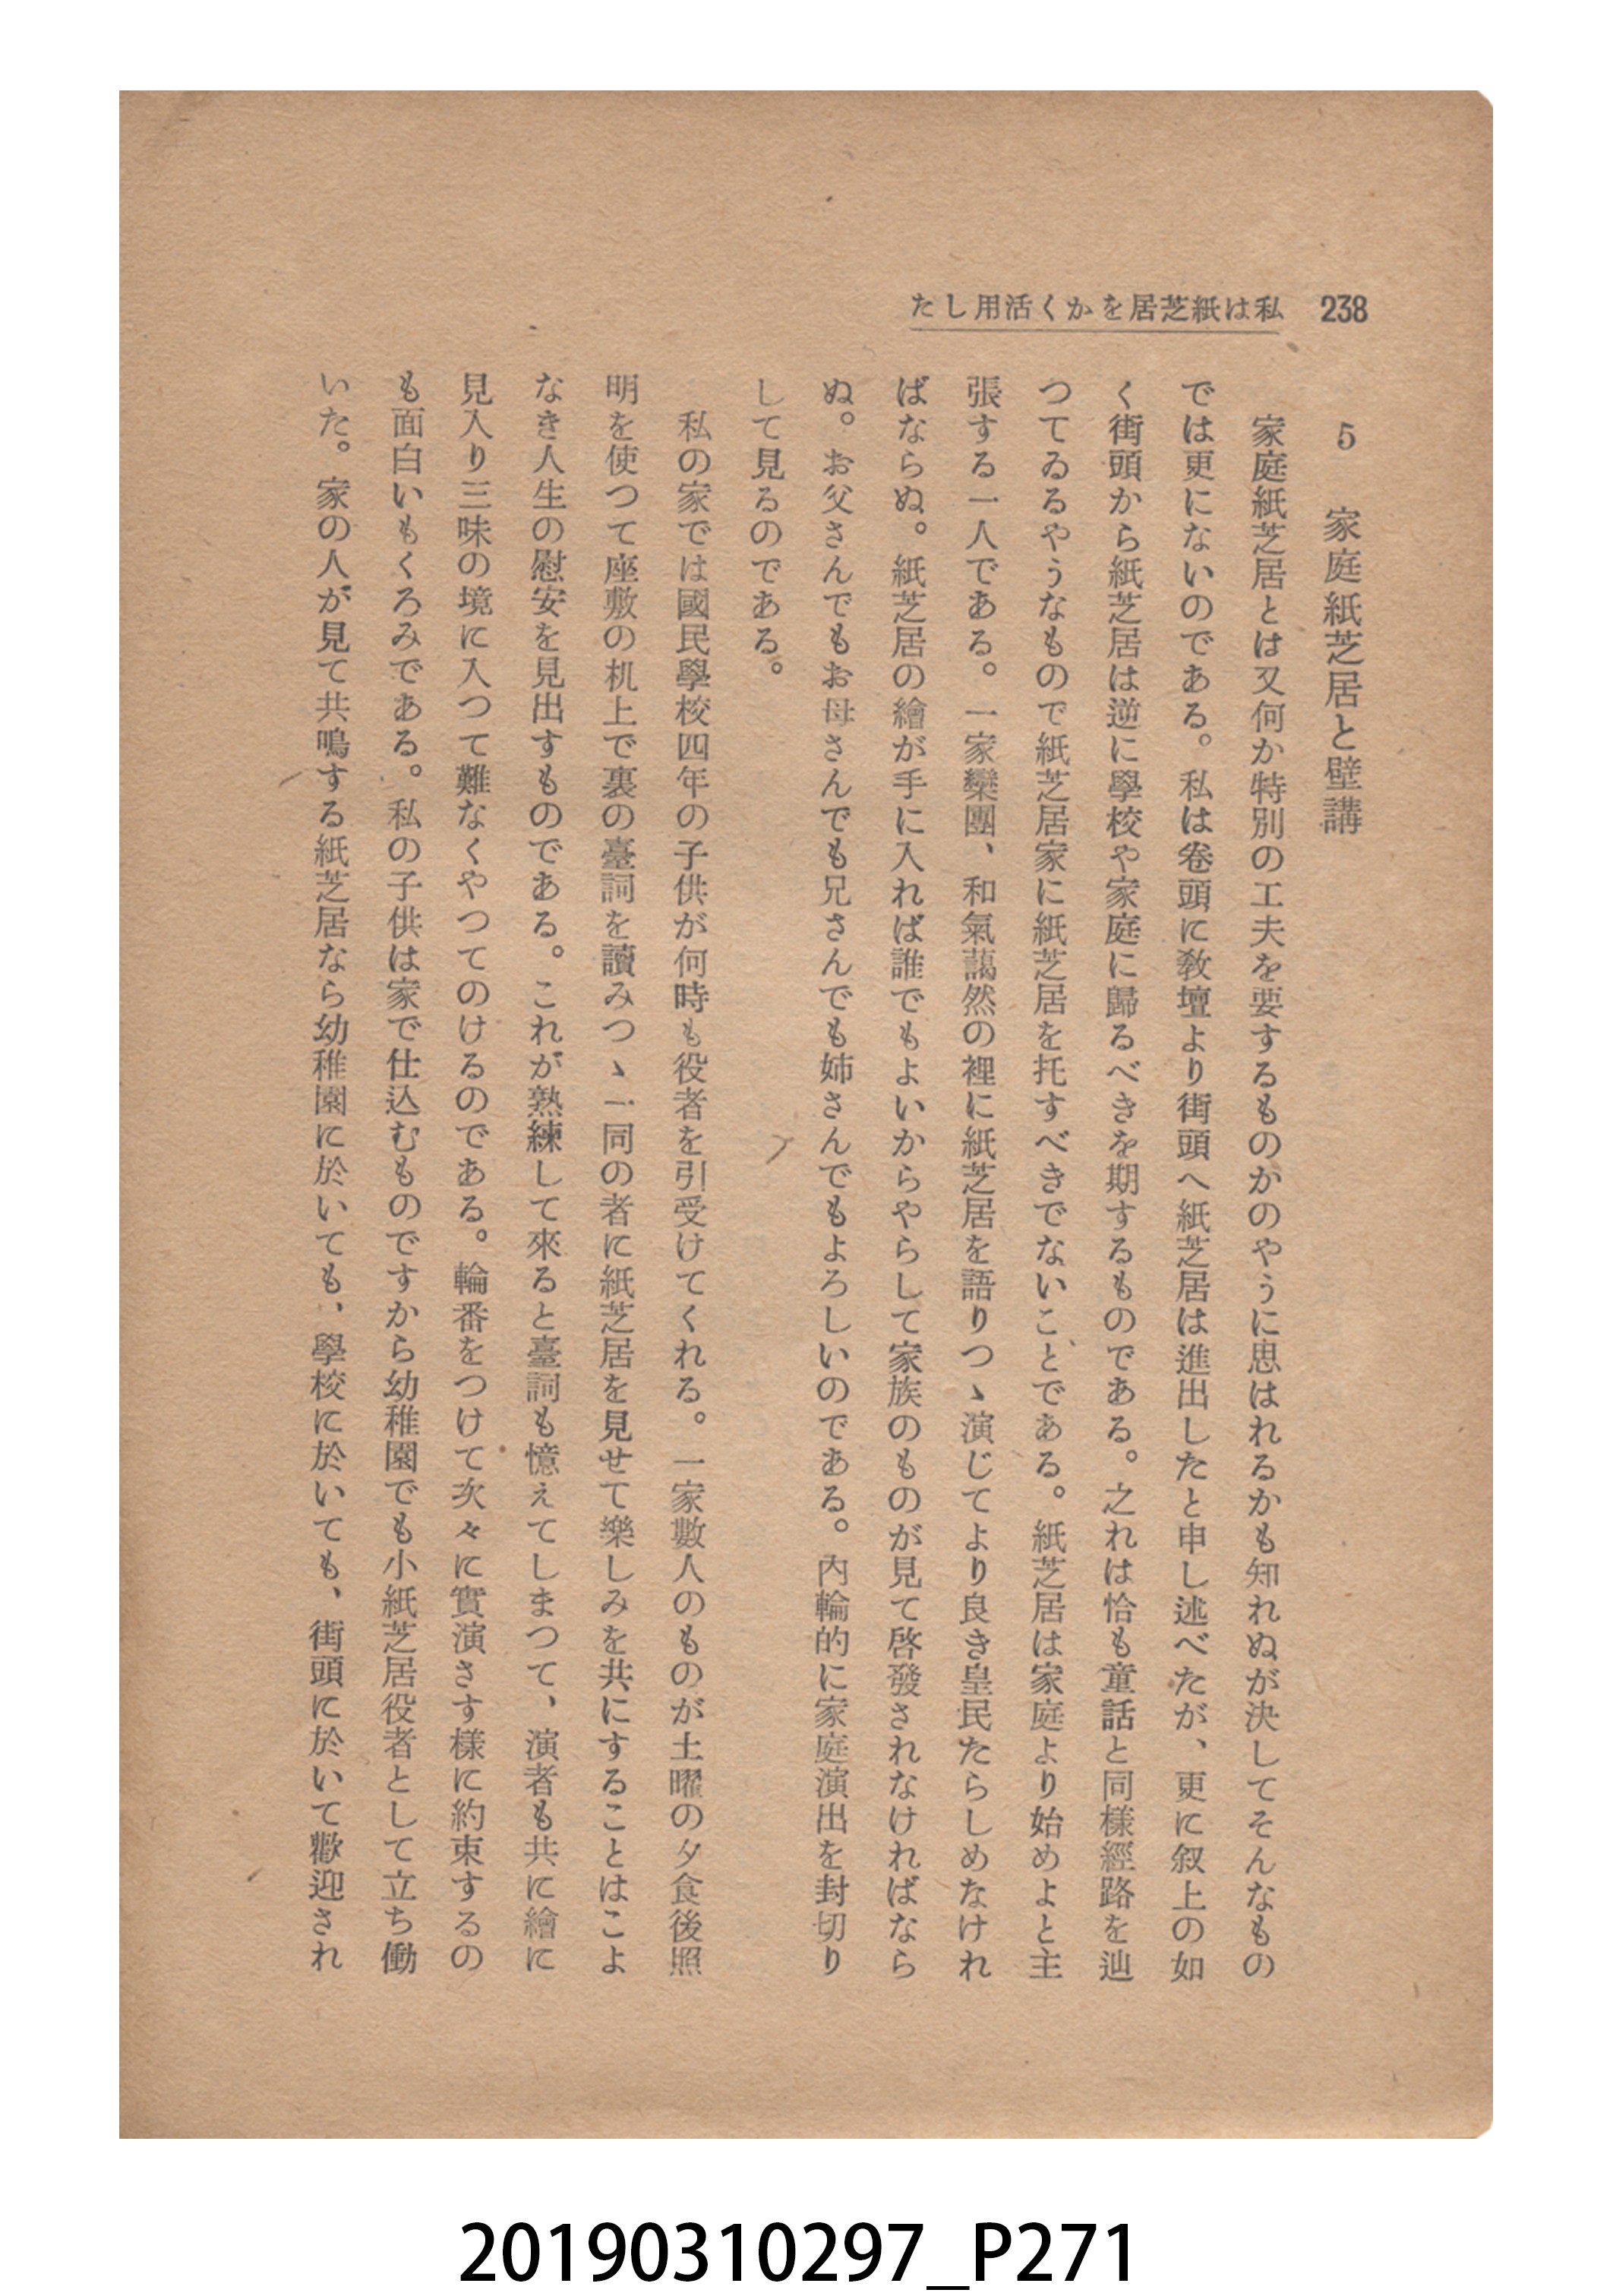 238 私は紙芝居をかく活用した
5 家庭紙芝居と壁講
家庭紙芝居とは又何か特別の工夫を要するものかのやうに思はれるかも知れぬが決してそんなもの
では更にないのである。私は卷頭に敎壇より街頭へ紙芝居は進出したと申し述べたが、更に叙上の如
く街頭から紙芝居は逆に學校や家庭に歸るべきを期するものである。之れは恰も童話と同樣經路を辿
つてゐるやうなもので紙芝居家に紙芝居を托すべきでないことである。紙芝居は家庭より始めよと主
張する一人である。一家欒團、和氣藹然の裡に紙芝居を語りつゝ演じてより良き皇民たらしめなけれ
ばならぬ。紙芝居の繪が手に入れば誰でもよいからやらして家族のものが見て啓發されなければなら
ぬ。お父さんでもお母さんでも兄さんでも姉さんでもよろしいのである。內輪的に家庭演出を封切り
して見るのである。
私の家では國民學校四年の子供が何時も役者を引受けてくれる。一家數人のものが土曜の夕食後照
明を使つて座敷の机上で裏の臺詞を讀みつゝ一同の者に紙芝居を見せて樂しみを共にすることはこよ
なき人生の慰安を見出すものである。これが熟練して來ると臺詞も憶えてしまつて、演者も共に繪に
見入り三味の境に入つて難なくやつてのけるのである。輪番をつけて次々に實演さす樣に約束するの
も面白いもくろみである。私の子供は家で仕込むものですから幼稚園でも小紙芝居役者として立ち働
いた。家の人が見て共鳴する紙芝居なら幼稚園に於いても、學校に於いても、街頭に於いて歡迎され
20190310297_P271